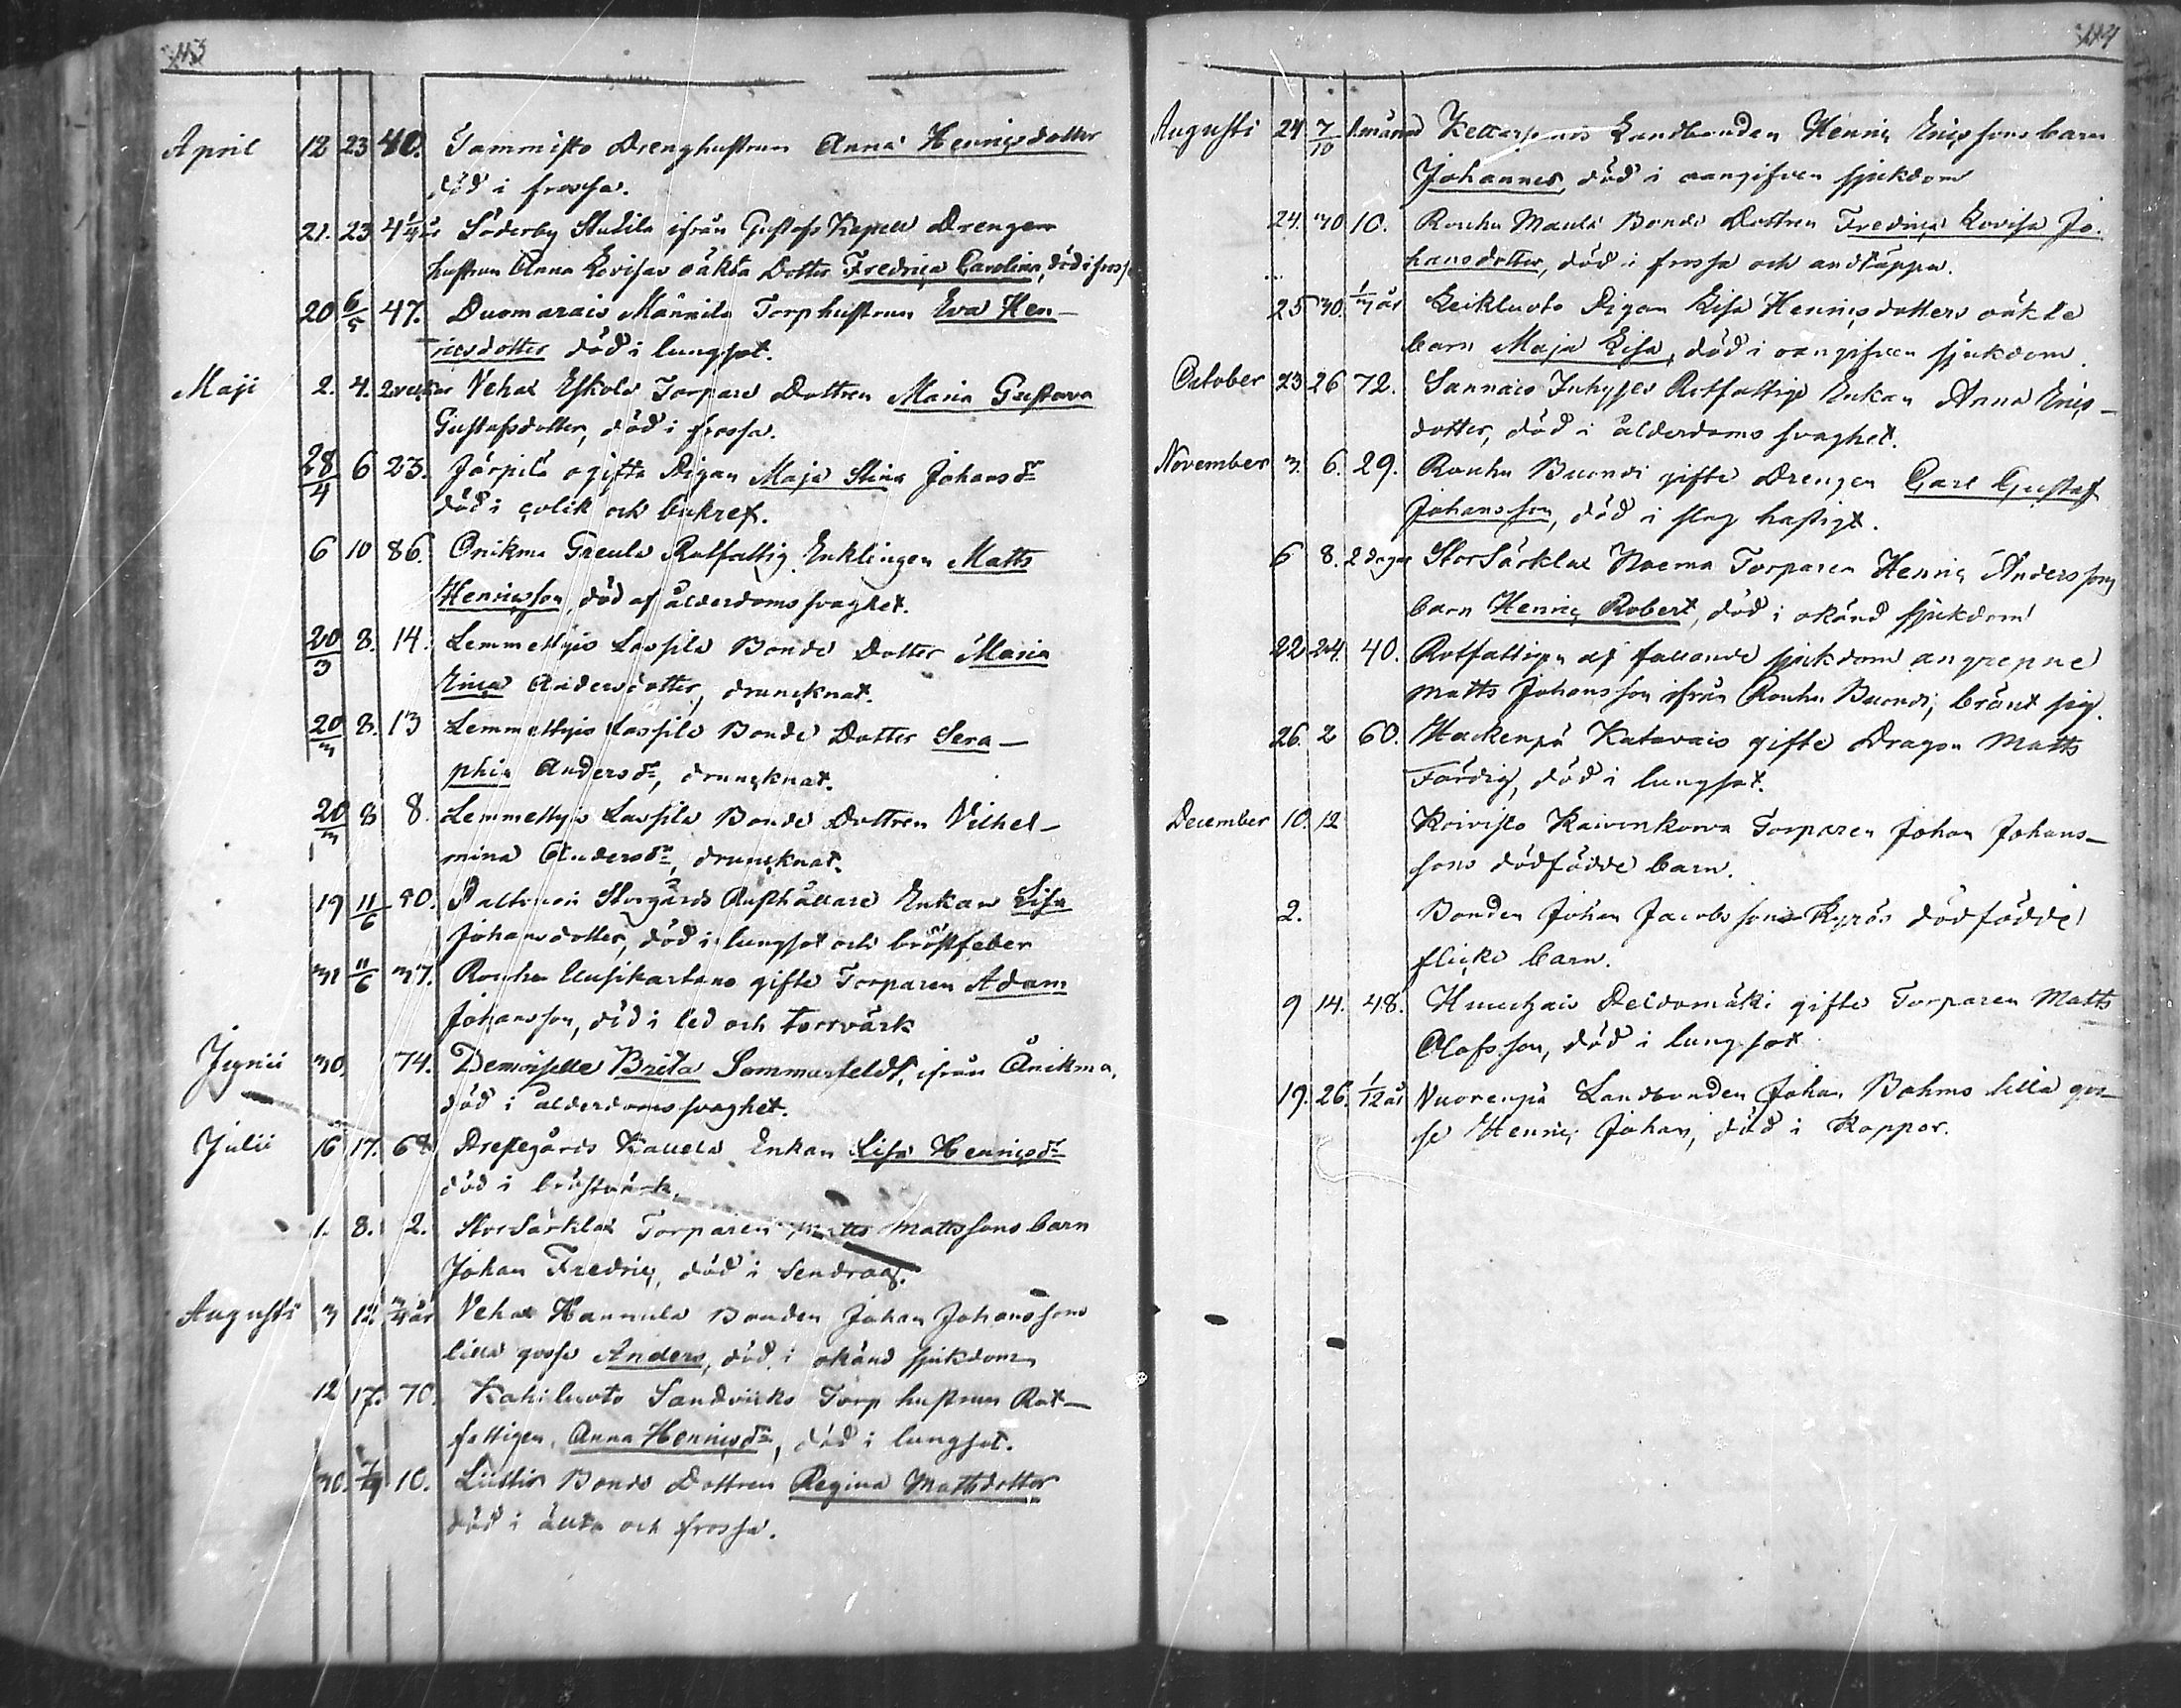 113
April 12 23 40. Tammisto Drenghustrun Anna Henricsdotter
död i frossa.
21. 23 4 1/4 år Söderby Skutila ifrån Gustafs Kapell Drengen
hustrun Anna Lovisas oäkta Dotter Fredrica Carolina, död i frossa
20 6/5 47. Duomarais Männila Torphustrun Eva Hen-
ricsdotter död i lungsot.
Maji 2. 4. 2 veckor Vehax Eskola Torpare Dottren Maria Gustava
Gustafsdotter, död i frossa.
28/4 6 23. Järpilä ogifta Pigan Maja Stina Johansdr
död i colik och bukref.
6 10 86. Onikma Greula Rotfattig Enklingen Matts
Henricsson, död af ålderdoms svaghet.
20/3 8. 14. Lemmettyis Lassila Bonde Dotter Maria
Erica Andersdotter, druncknat.
20/3 8. 13 Lemmettyis Lassila Bonde Dotter Sera-
phia Andersdr, druncknat.
20/3 8 8. Lemmettyis Lassila Bonde Dottren Vilhel-
mina Andersdr, druncknat.
19 11/6 80. Storgårds Rusthållare Enkan Lisa
Johansdotter, död i lungsot och bröstfeber
31 11/6 37. Rouhu Uusikartano gifte Torparen Adam
Johansson, död i led och torrvärk
Junii 30. 74. Demoiselle Brita Sommarfeldt, ifrån Onikma,
död i ålderdoms svaghet.
Julii 16 17. 68 Prestgårds Kallela Enkan Lisa Henricsdr
död i bröstvärk.
1. 8. 2. Stor Särklax Torparen Matts Mattssons barn
Johan Fredric, död i Sendrag.
Augusti 3 12. 3/4 år Vehax Hannula Bonden Johan Johanssons
lilla gosse Anders, död i okänd sjukdom
12 17. 70. Kahiluoto Sandviks Torp hustrun Rot-
fattigen Anna Henricsdr, död i lungsot.
30. 7/9 10. Bonde Dottren Regina Mattsdotter
död i älta och frossa.
114
Augusti 24 7/10 1 månad Landbonden Henric Ericssons barn
Johannes, död i oangifven sjukdom
24. 30 10. Rouhu Bonde Dottren Fredrica Lovisa Jo-
hansdotter, död i frossa och andtäppa.
25 30. 1/4 år Keikluoto Pigan Lisa Henricsdotters oäkta
barn Maja Lisa, död i oangifven sjukdom.
October 23 26 72. Sannais Inhyses Rotfattige Enkan Anna Erics-
dotter, död i ålderdoms svaghet.
November 3. 6. 29. Rouhu Buondi gifte Drengen Carl Gustaf
Johansson, död i slag hastigt.
6 8. 2 dagar Stor Särklax Torparen Henric Anderssons
barn Henric Robert, död i okänd sjukdom
22 24. 40. Rotfattigen af fallande sjukdom angrepne
Matts Johansson ifrån Rouhu Buondi, bränt sig.
26. 2 60. Hackenpä Katavais gifte Dragon Matts
Färdig, död i lungsot.
December 10. 12 Koivisto Kaivonkorva Torparen Johan Johans-
sons dödfödde barn.
2. Bonden Johan Jacobssons Kyrös dödfödde
flicke barn.
9 14. 48. Peldomäki gifte Torparen Matts
Olofsson, död i lungsot
19. 26. 1/12 år Vuorenpä Landbonden Johan Bohms lilla gos-
se Henric Johan, död i Koppor.